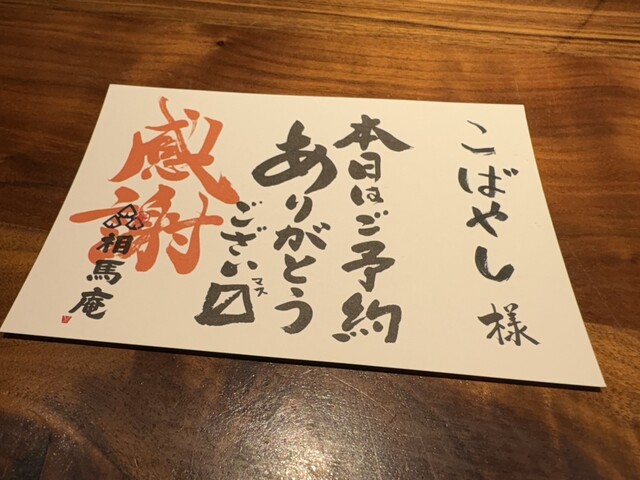 こばやし 様
本日はご予約
ありがとう
ござい〼
マス
感謝
相馬庵